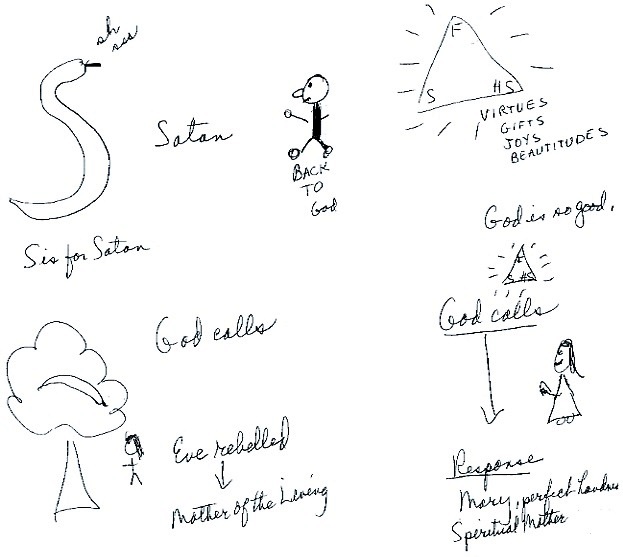 Satan
BACK
TO
God
S is for Satan
God calls
Eve rebelled
Mother of the Living
F
S HS
VIRTUES
GIFTS
JOYS
BEAUTITUDES
God is so good.
F
S HS
God calls
Response
Mary, perfect
Spiritual Mother